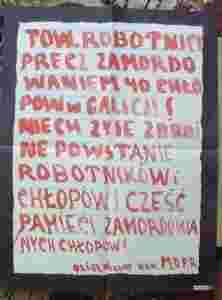 TOW. ROBOTNICY
PRECZ ZAMORDO
WANIEM 40 CHŁO
POW W GALICJI!
NIECH ŻYJE ZBROJ
NE POWSTANIE
ROBOTNIKÓW i
CHŁOPÓW! CZEŚĆ
PAMIĘCI ZAMORDOWA
NYCH CHŁOPÓW!
MOPR